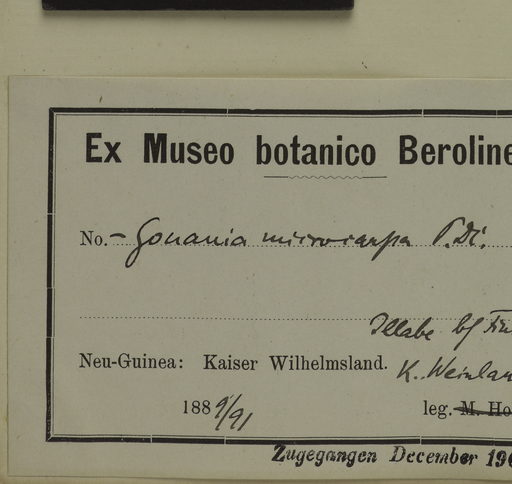 Ex Museo botanico Beroline
No. - Gouania microcarpa P. Di.
Neu-Guinea: Kaiser Wilhelmsland. K. Weinlan
1889/91 leg. M. Ho
Zugegangen December 190